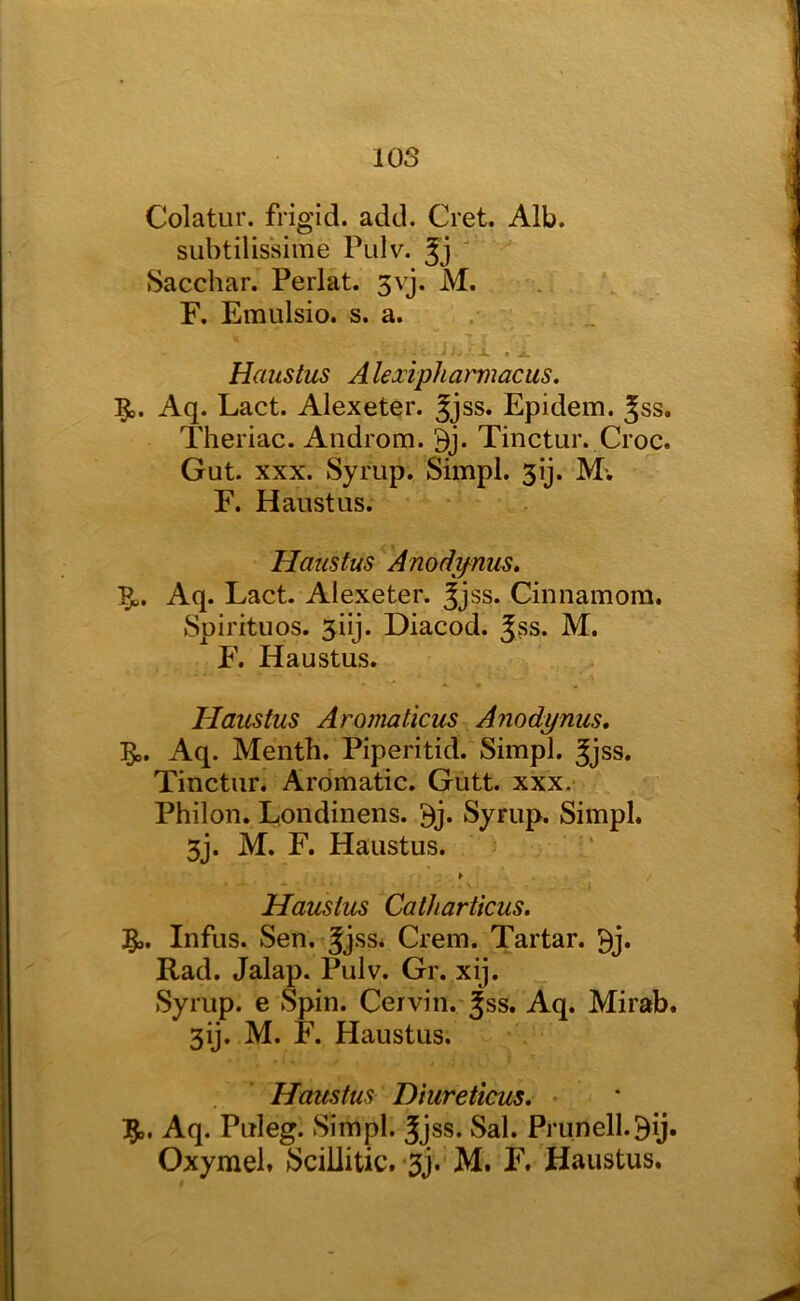 103
Colatur. frigid. add. Cret. Alb.
subtilissime Pulv. ℥j
Sacchar. Perlat. ʒvj. M.
F. Emulsio. s. a.
Haustus Alexipharmacus.
℞. Aq. Lact. Alexeter. ℥jss. Epidem. ℥ss.
Theriac. Androm. ℈j. Tinctur. Croc.
Gut. xxx. Syrup. Simpl. ʒij. M.
F. Haustus.
Haustus Anodynus.
℞. Aq. Lact. Alexeter. ℥jss. Cinnamom.
Spirituos. ʒiij. Diacod. ℥ss. M.
F. Haustus.
Haustus Aromaticus Anodynus.
℞. Aq. Menth. Piperitid. Simpl. ℥jss.
Tinctur. Aromatic. Gutt. xxx.
Philon. Londinens. ℈j. Syrup. Simpl.
ʒj. M. F. Haustus.
Haustus Catharticus.
℞. Infus. Sen. ℥jss. Crem. Tartar. ℈j.
Rad. Jalap. Pulv. Gr. xij.
Syrup. e Spin. Cervin. ℥ss. Aq. Mirab.
ʒij. M. F. Haustus.
Haustus Diureticus.
℞. Aq. Puleg. Simpl. ℥jss. Sal. Prunell. ℈ij.
Oxymel. Scillitic. ʒj. M. F. Haustus.